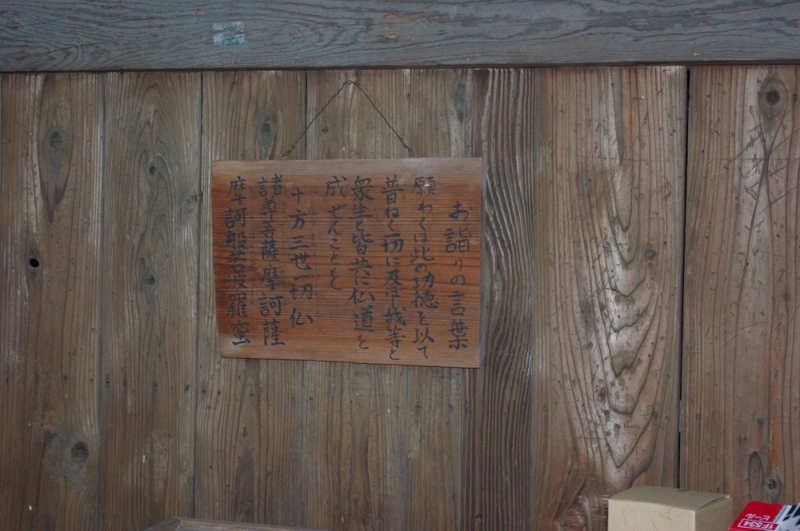 お詣りの言葉
願わくは此の功徳を以て
普ねく一切に及ぼし我等と
衆生と皆共に仏道を
成ぜんことを
十方三世一切仏
諸尊菩薩摩訶薩
摩訶般若波羅蜜
1F534
ビール